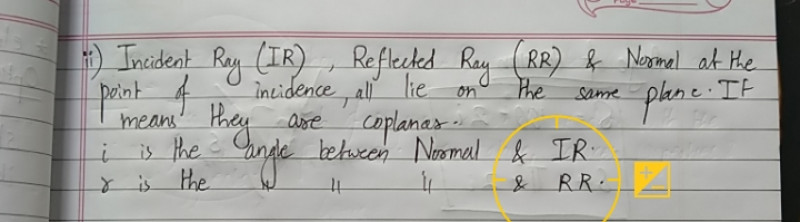 ii) Incident Ray (IR), Reflected Ray (RR) & Normal at the
point of incidence, all lie on the same plane. It
means they are coplanar.
i is the angle between Normal & IR.
r is the " " " & RR.